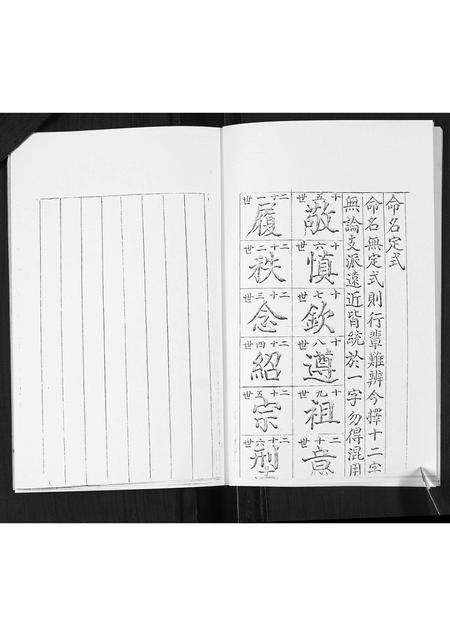 命名定式
命名無定式則行輩難辨今擇十二字
無論支派遠近皆統於一字勿得混用
十五世
敬
十六世
慎
十七世
欽
十八世
遵
十九世
祖
二十世
意
二十一世
履
二十二世
秩
二十三世
念
二十四世
紹
二十五世
宗
二十六世
刑